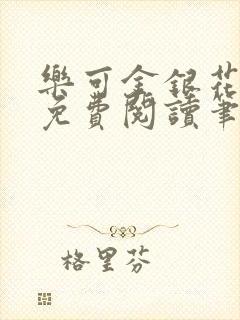 樂可金銀花
免費閱讀筆
格里芬